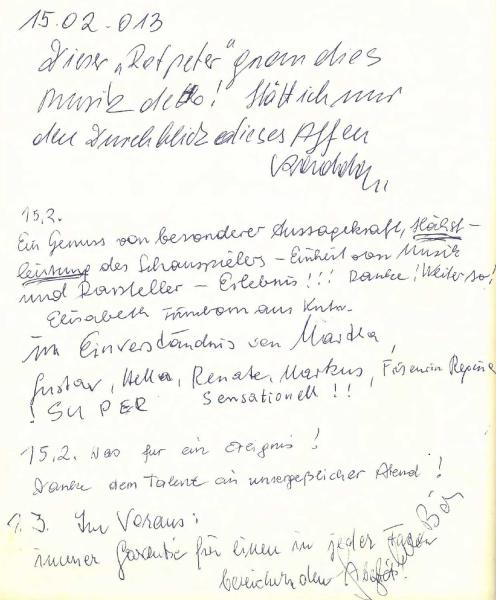 15.02.013
Dieser "Rotpeter" grandios
Musik detto! Hätt ich nur
den Durchblick dieses Affen
15.2.
Ein Genuss von besonderer Aussagekraft, Höchst-
leistung des Schauspielers – Einheit von Musik
und Darsteller – Erlebnis!!! Danke! Weiter so!
Elisabeth aus
im Einverständnis von Martha,
Gustav, Hella, Renate, Markus, Regina
! SUPER Sensationell!!
15.2. Was für ein Ereignis!
Danke dem Talent ein unvergeßlicher Abend!
1.3. Im Voraus:
immer Garantie für einen in jeder
bereichernden